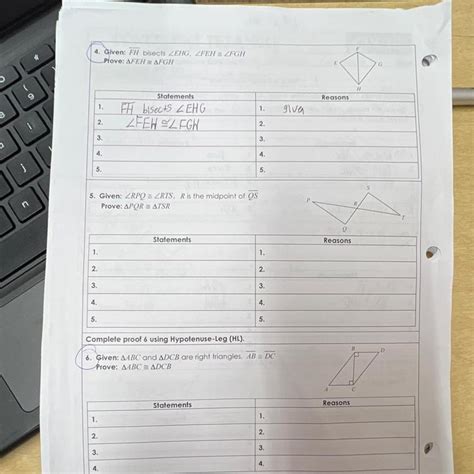 4. Given: FH bisects ∠EHG, ∠FEH ≅ ∠FGH
Prove: ΔFEH ≅ ΔFGH
F
E
G
H
Statements Reasons
1. FH bisects ∠EHG 1.
2. ∠FEH ≅ ∠FGH 2.
3. 3.
4. 4.
5. 5.
5. Given: ∠RPQ ≅ ∠RTS, R is the midpoint of QS
Prove: ΔPQR ≅ ΔTSR
S
P
R
T
Q
Statements Reasons
1. 1.
2. 2.
3. 3.
4. 4.
5. 5.
Complete proof 6 using Hypotenuse-Leg (HL).
6. Given: ΔABC and ΔDCB are right triangles, AB ≅ DC
Prove: ΔABC ≅ ΔDCB
B
D
A
C
Statements Reasons
1. 1.
2. 2.
3. 3.
4. 4.